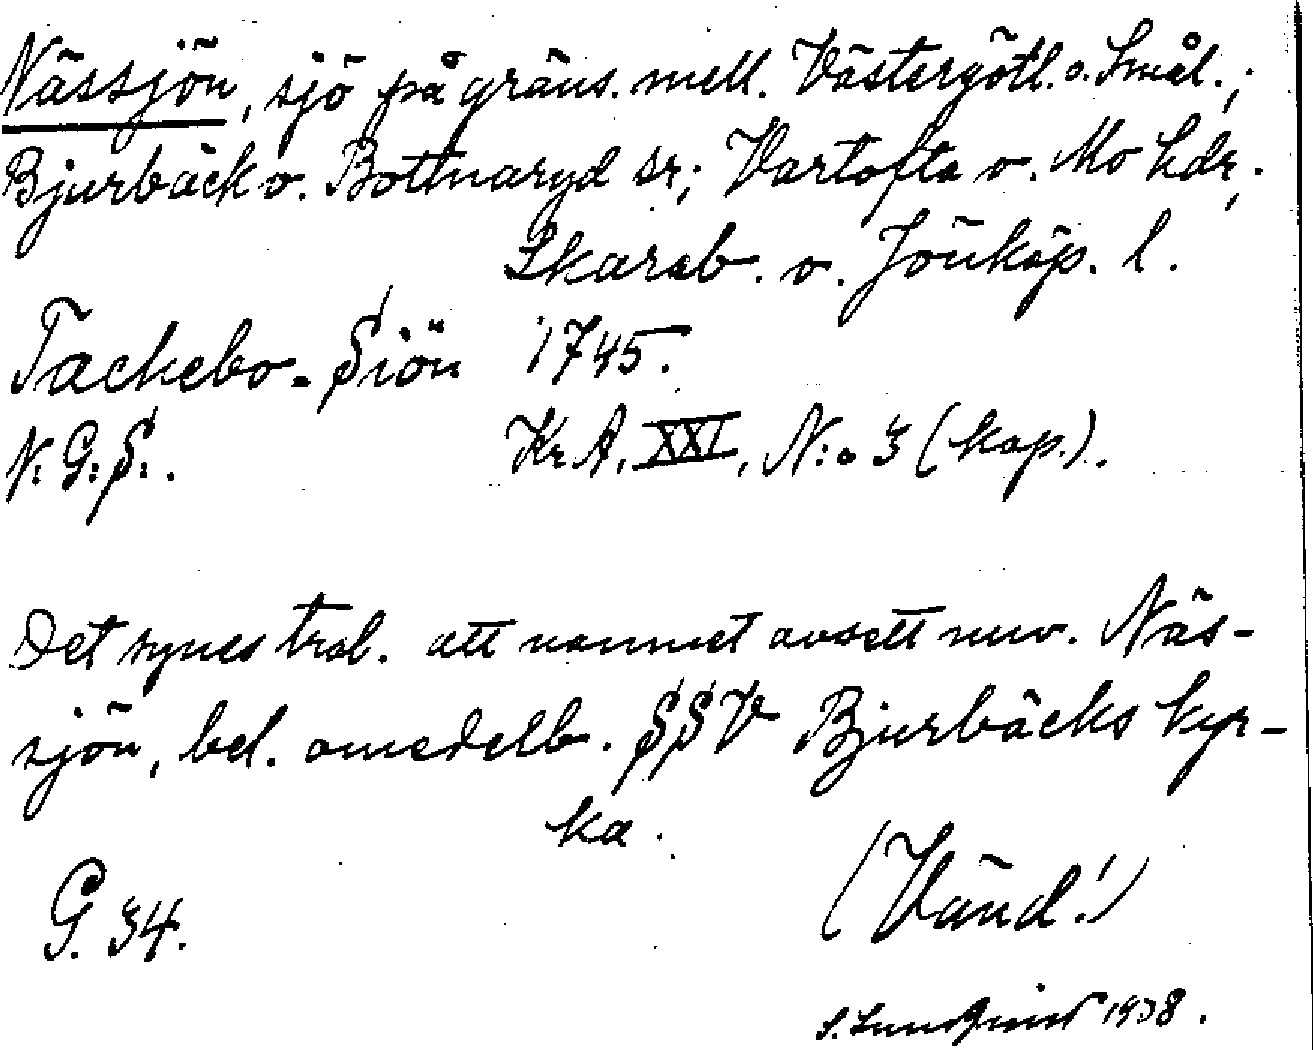 Nässjön, sjö på gräns. mell. Västergötl. o. Smål.;
Bjurbäck o. Bottnaryd sr; Vartofta o. Mo hdr,.
Skarab. o. Jönköp. l.
Tackebo-Siön 1745.
N: G: S:. Kr. A. XXI, N:o 3 (kop.).
Det synes trol. att namnet avsett nuv. Näs-
sjön, bel. omedelb. SSV Bjurbäcks kyr-
ka.
G. 34. (Vänd!)
S. Lundqvist 1938.